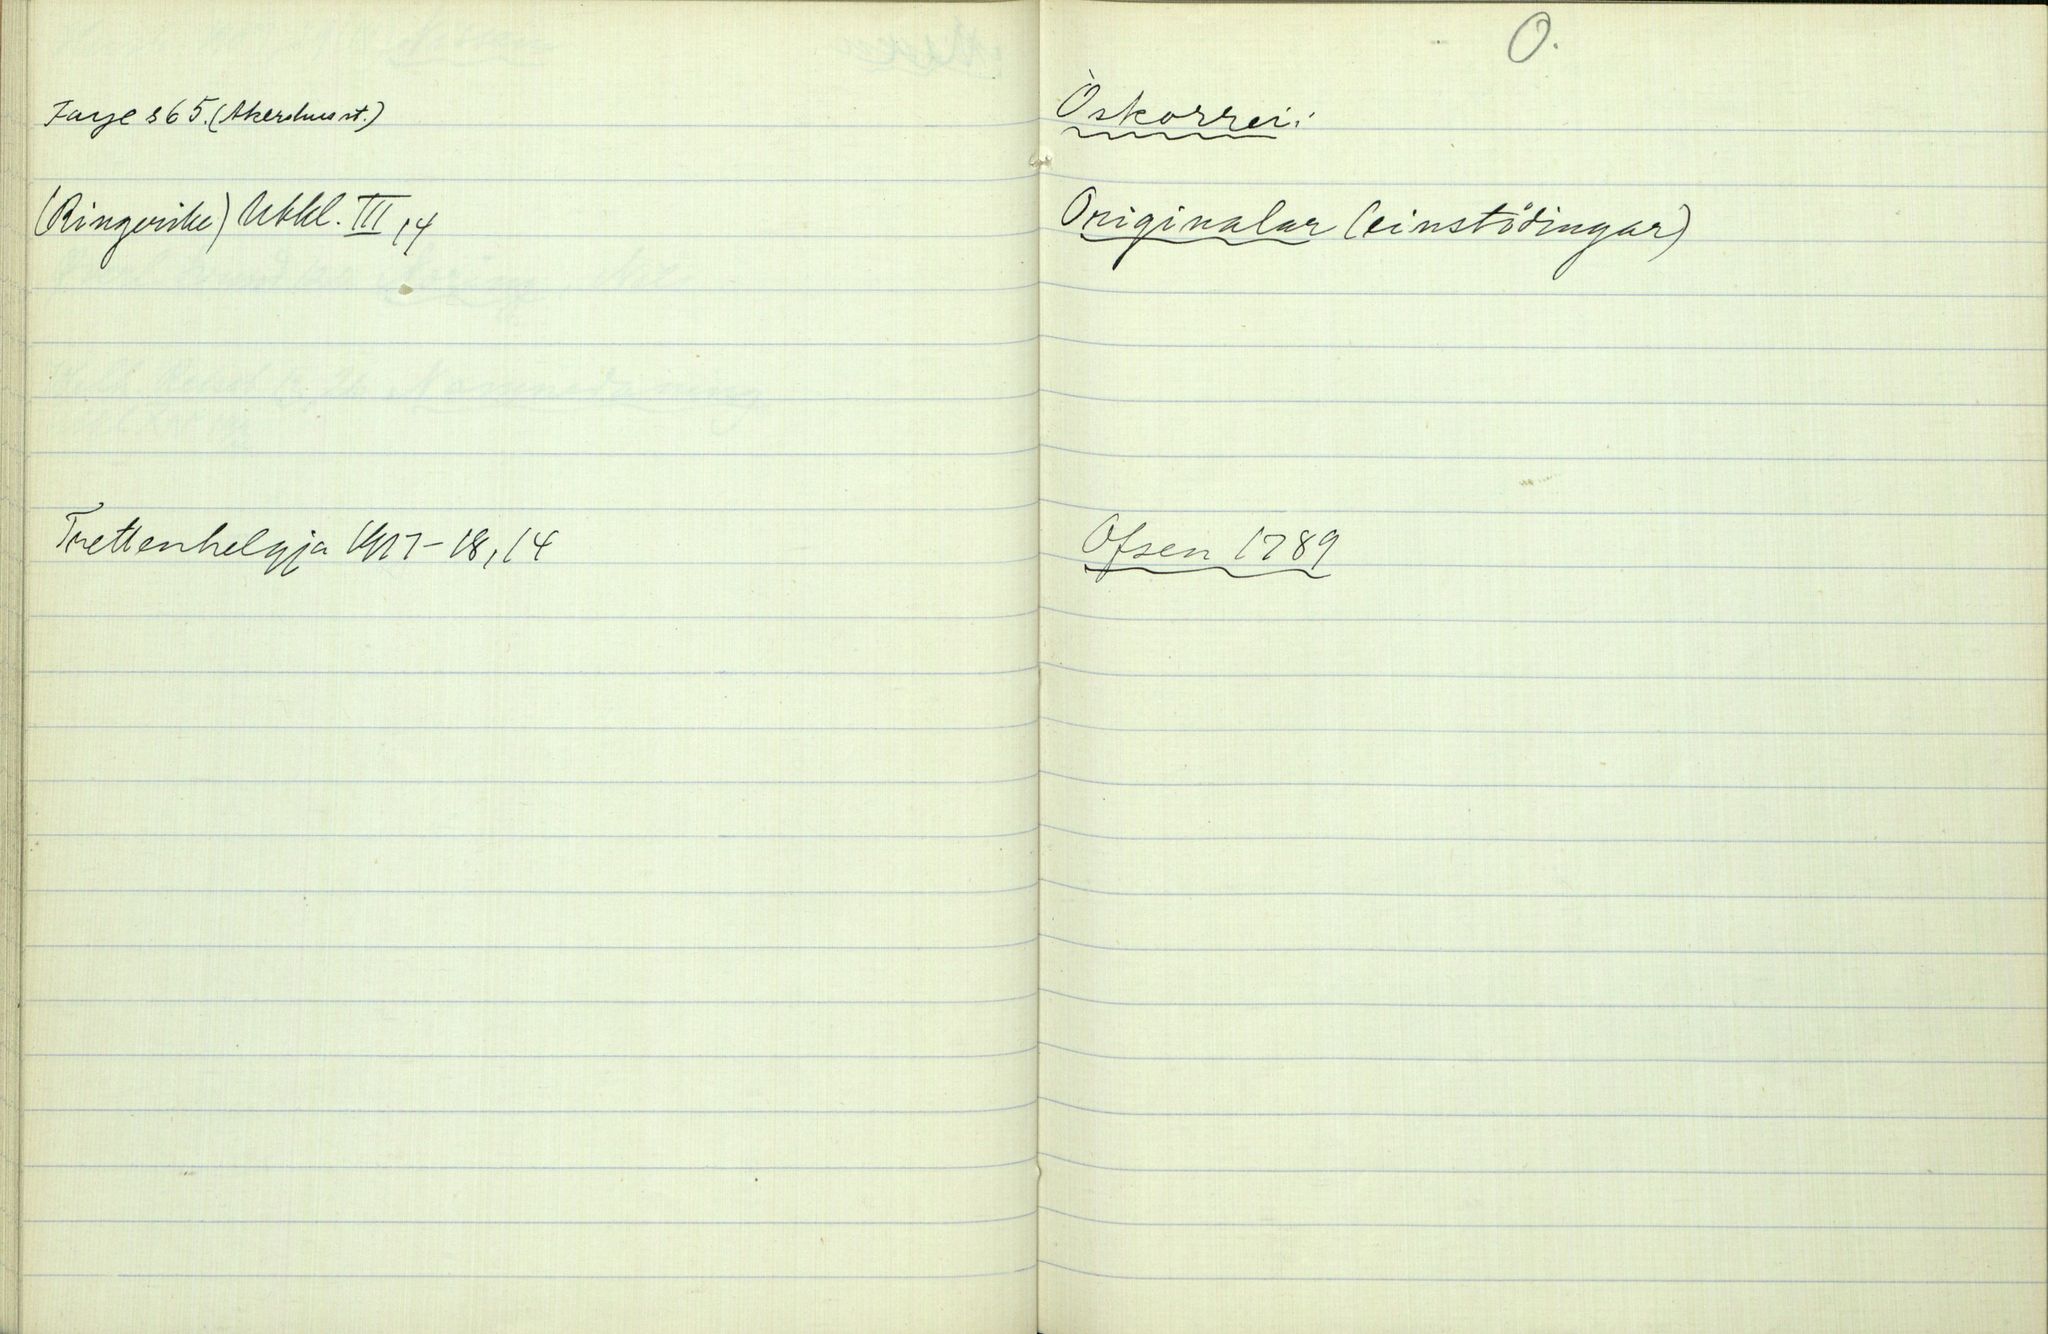 Faye s 65. (Akershus st.)
(Ringerike) Utkl. III, 14
Trettenhelgja 1917-18, 14
O.
Òskorrei:
Originalar (einstödingar)
Ofsen 1789